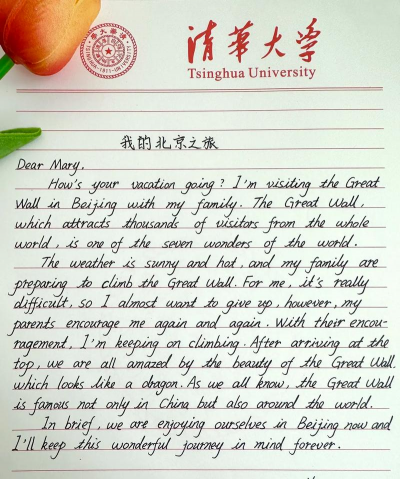 清華大学
Tsinghua University
我的北京之旅
Dear Mary,
How's your vacation going? I'm visiting the Great
Wall in Beijing with my family. The Great Wall,
which attracts thousands of visitors from the whole
world, is one of the seven wonders of the world.
The weather is sunny and hot, and my family are
preparing to climb the Great Wall. For me, it's really
difficult, so I almost want to give up, however, my
parents encourage me again and again. With their encou-
ragement, I'm keeping on climbing. After arriving at the
top, we are all amazed by the beauty of the Great Wall.
which looks like a dragon. As we all know, the Great Wall
is famous not only in China but also around the world.
In brief, we are enjoying ourselves in Beijing now and
I'll keep this wonderful journey in mind forever.